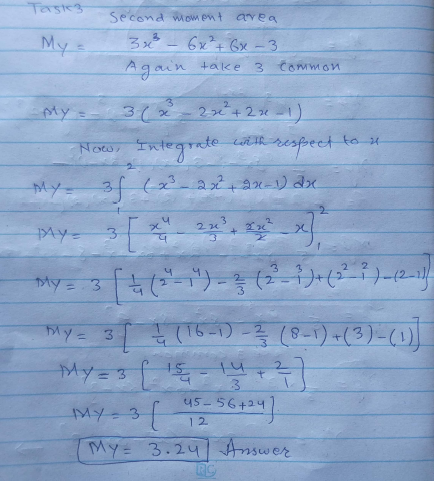 Task3
Second moment area
My = 3x³ - 6x² + 6x - 3
Again take 3 common
My = 3(x³ - 2x² + 2x - 1)
Now, Integrate with respect to x
My = 3∫₁² (x³ - 2x² + 2x - 1) dx
My = 3[x⁴/4 - 2x³/3 + 2x²/2 - x]₁²
My = 3[1/4(2⁴-1⁴) - 2/3(2³-1³) + (2²-1²) - (2-1)]
My = 3[1/4(16-1) - 2/3(8-1) + (3) - (1)]
My = 3[15/4 - 14/3 + 2/1]
My = 3[45-56+24/12]
My = 3.24 Answer